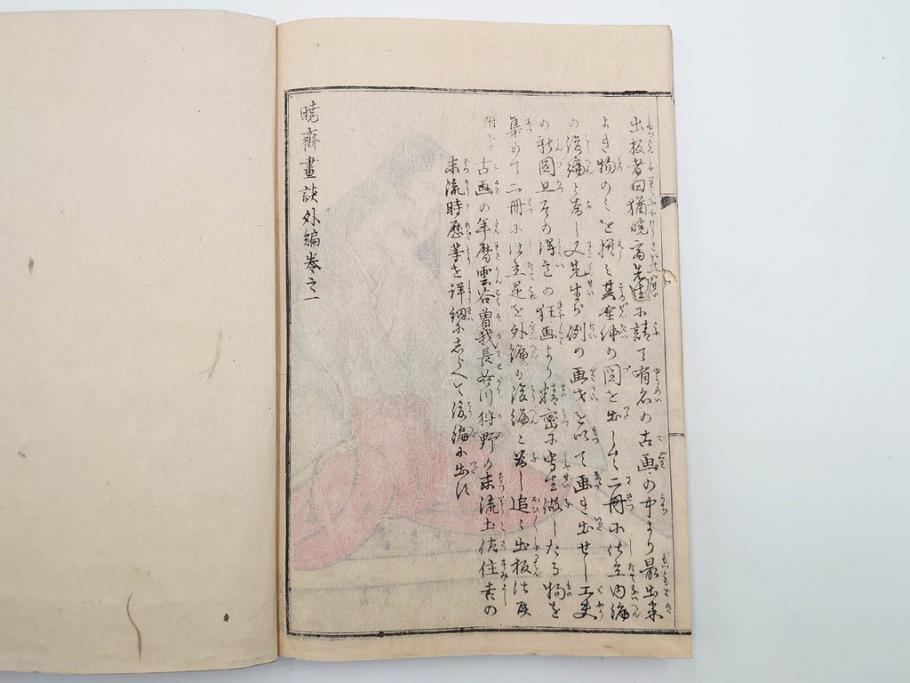 出板者曰猶暁斎先生に請て有名の古画の中より最出来
よき物のミを撰ミ其全体の図を出して二冊に仕立内編
の後編と為し又先生が例の画才を以て画き出せし工夫
の新図且その得意の狂画より精密に写生做したる物を
集めて二冊に仕立是を外編の後編と為し追々出板仕候
附言 古画の年暦雲谷曽我長谷川狩野の末流土佐住吉の
末流時歴等を詳細にしらべて後編に出す
暁齋畫談外編巻之一